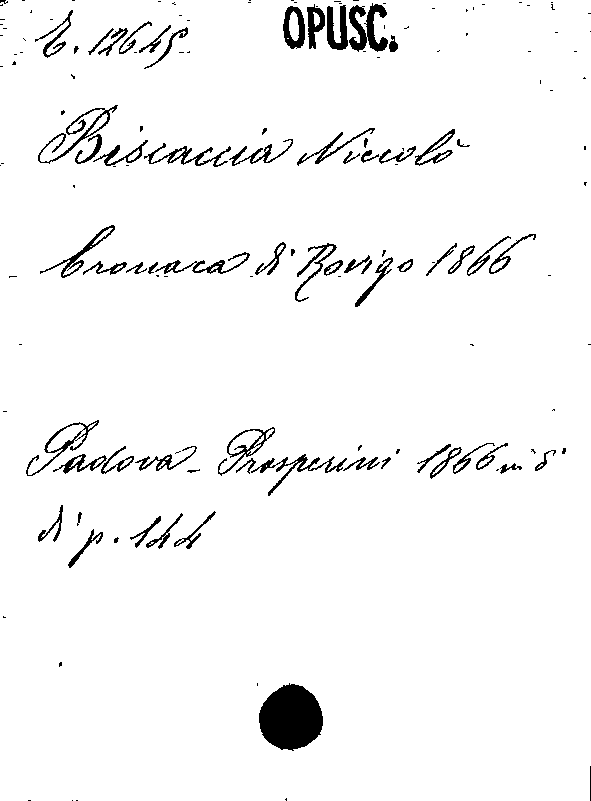 E. 12645 OPUSC.
Biscaccia Niccolò
Cronaca di Rovigo 1866
Padova - Prosperini 1866 in 8°
di p. 144